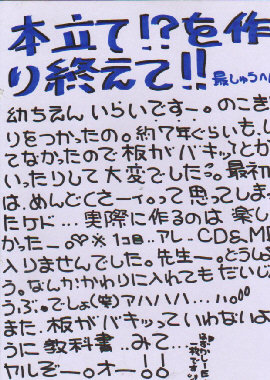 本立て!?を作
り終えて!!
最しゅうへ
幼ちえん いらいですー。のこぎ
りをつかったの。約7年ぐらいも、し
てなかったので板がバキッとか
いったりして大変でした。最初
は、めんどくさーィ。って思ってしまっ
たケド…実際に作るのは 楽し
かったー。※1コ目…アレ…CD&M
入りませんでした。先生ー。どうしよ
う。なんかかわりに入れても だいじょ
うぶ。でしょ(笑)アハハハ…ハ。
また、板がバキッっていわないよ
うに 教科書…みて…
ヤルぞー。オー!!